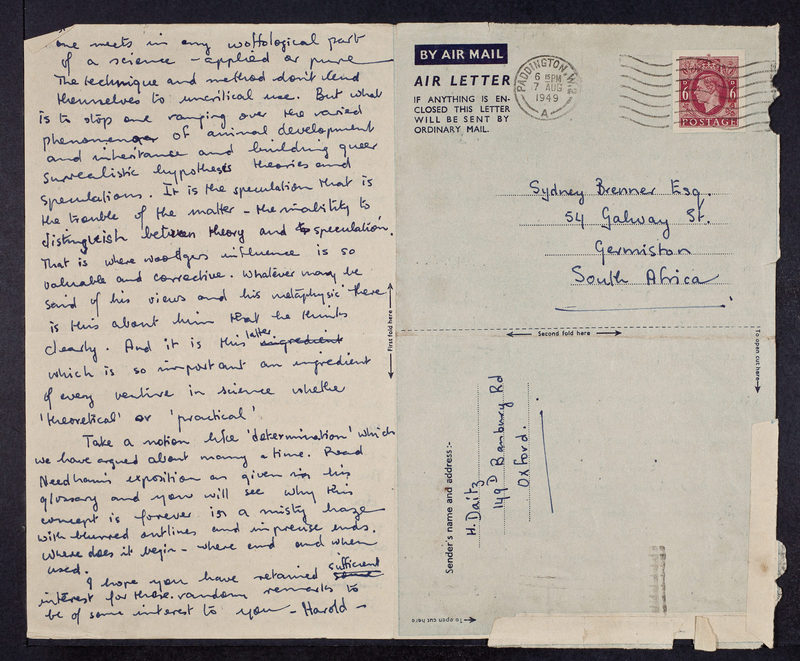 one meets in any woffological part
of a science - applied or pure
The technique and method don't lend
themselves to uncritical use. But what
is to stop one ranging over the varied
phenomena of animal development
and inheritance and building queer
surrealistic hypotheses theories and
speculations. It is the speculation that is
the trouble of the matter - the inability to
distinguish between theory and speculation.
That is where woodgers influence is so
valuable and corrective. Whatever may be
said of his views and his 'metaphysic' there
is this about him that he thinks
clearly. And it is this latter ingredient
which is so important an ingredient
of every venture in science whether
'theoretical' or 'practical'.
Take a notion like 'determination' which
we have argued about many a time. Read
Needham's exposition as given in his
glossary and you will see why this
concept is forever in a misty haze
with blurred outlines and imprecise ends.
Where does it begin - where end and when
used.
I hope you have retained sufficient some
interest for these random remarks to
be of some interest to you - Harold -
First fold here
BY AIR MAIL
AIR LETTER
IF ANYTHING IS EN-
CLOSED THIS LETTER
WILL BE SENT BY
ORDINARY MAIL.
PADDINGTON, W.2
6 15PM
7 AUG
1949
A
6 6
POSTAGE
Sydney Brenner Esq.
54 Galway St.
Germiston
South Africa
Second fold here
To open cut here
Sender's name and address:-
H. Daitz
149 D Banbury Rd
Oxford.
To open cut here